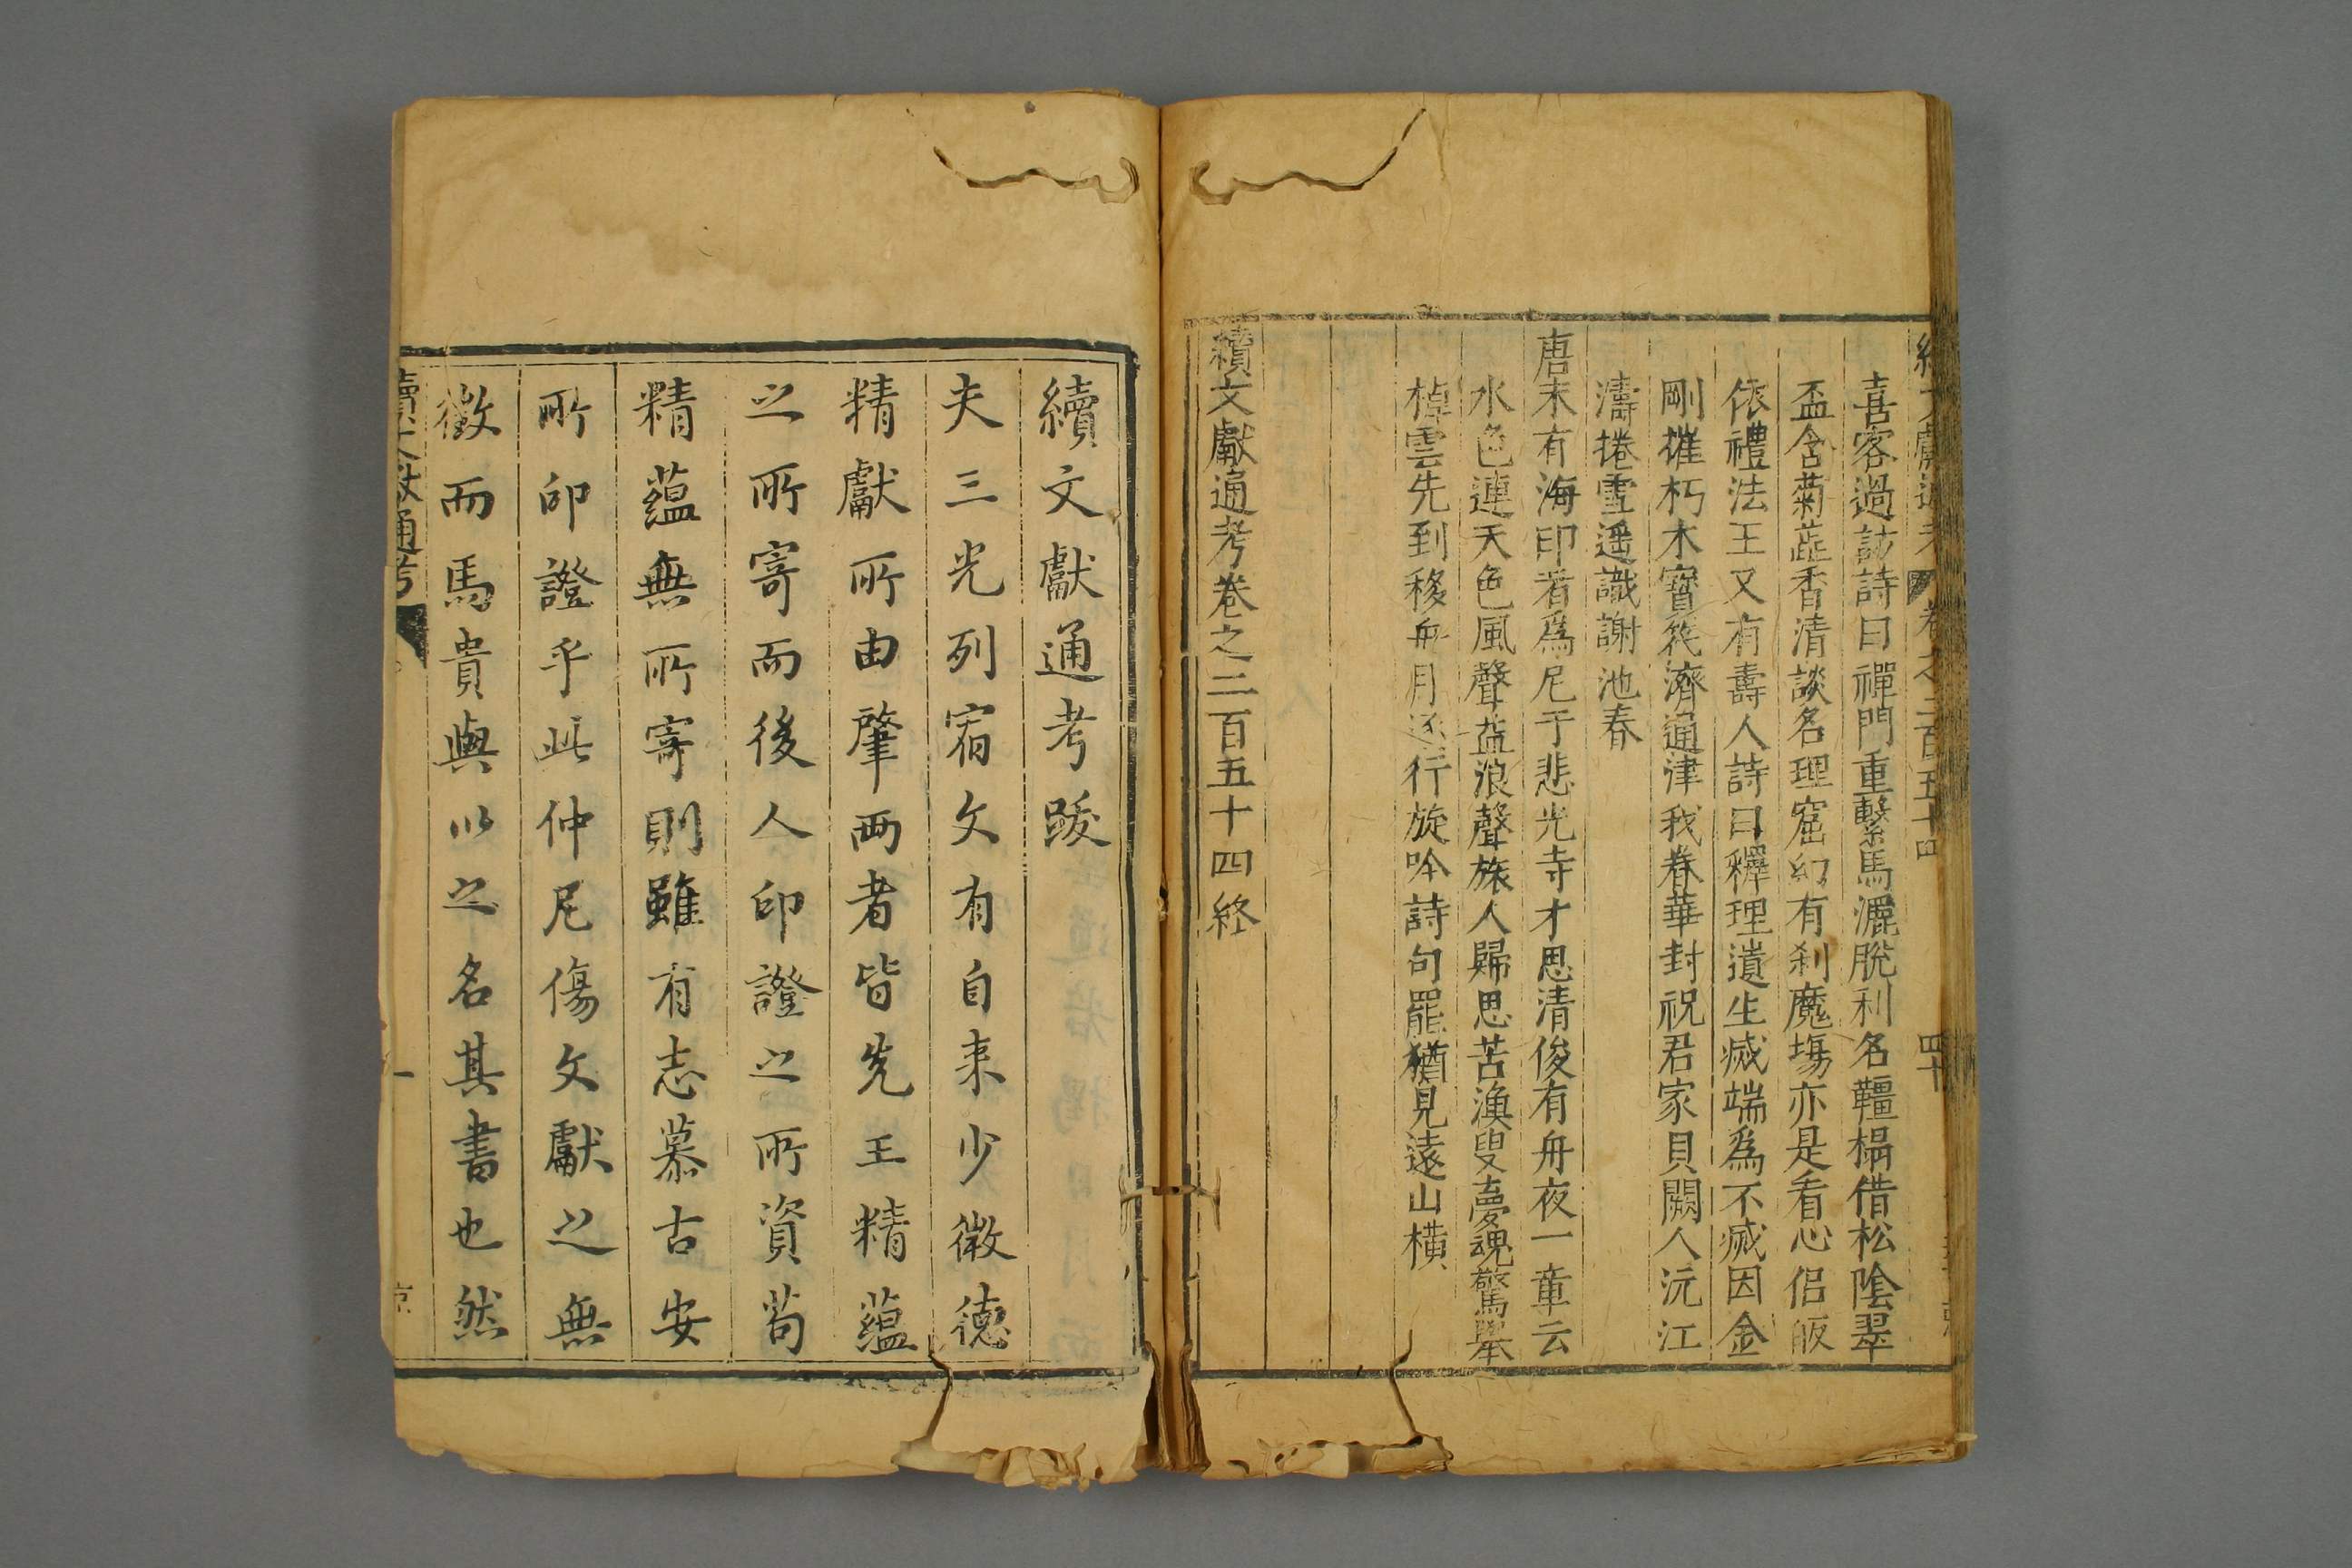 喜客過訪詩曰禪門重繫馬灑脫利名韁榻借松陰翠
盃含菊蕋香清談名理窟幻有剎魔塲亦是看心侶皈
依禮法王又有壽人詩曰釋理遺生滅端為不滅因金
剛摧朽木寳筏濟通津我眷華封祝君家貝闕人沅江
濤捲雪遥識謝池春
唐末有海印者爲尼于悲光寺才思清俊有舟夜一章云
水色連天色風聲益浪聲旅人歸思苦漁叟夢魂驚舉
棹雲先到移舟月逐行旋吟詩句罷猶見遠山橫
續文獻通考卷之二百五十四終
續文獻通考跋
夫三光列宿文有自来少微德
精獻所由肇两者皆先王精蘊
之所寄而後人印證之所資苟
精蘊無所寄則雖有志慕古安
所印證乎此仲尼傷文獻之無
徵而馬貴與以之名其書也然
續文獻通考
一